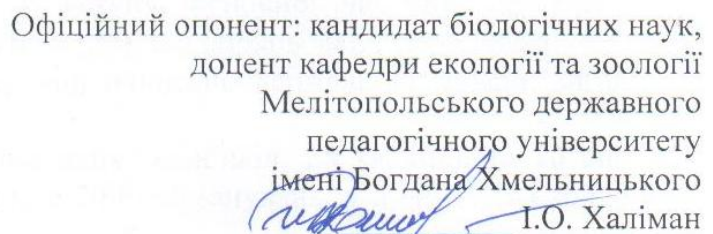 Офіційний опонент: кандидат біологічних наук,
доцент кафедри екології та зоології
Мелітопольського державного
педагогічного університету
імені Богдана Хмельницького
І.О. Халіман